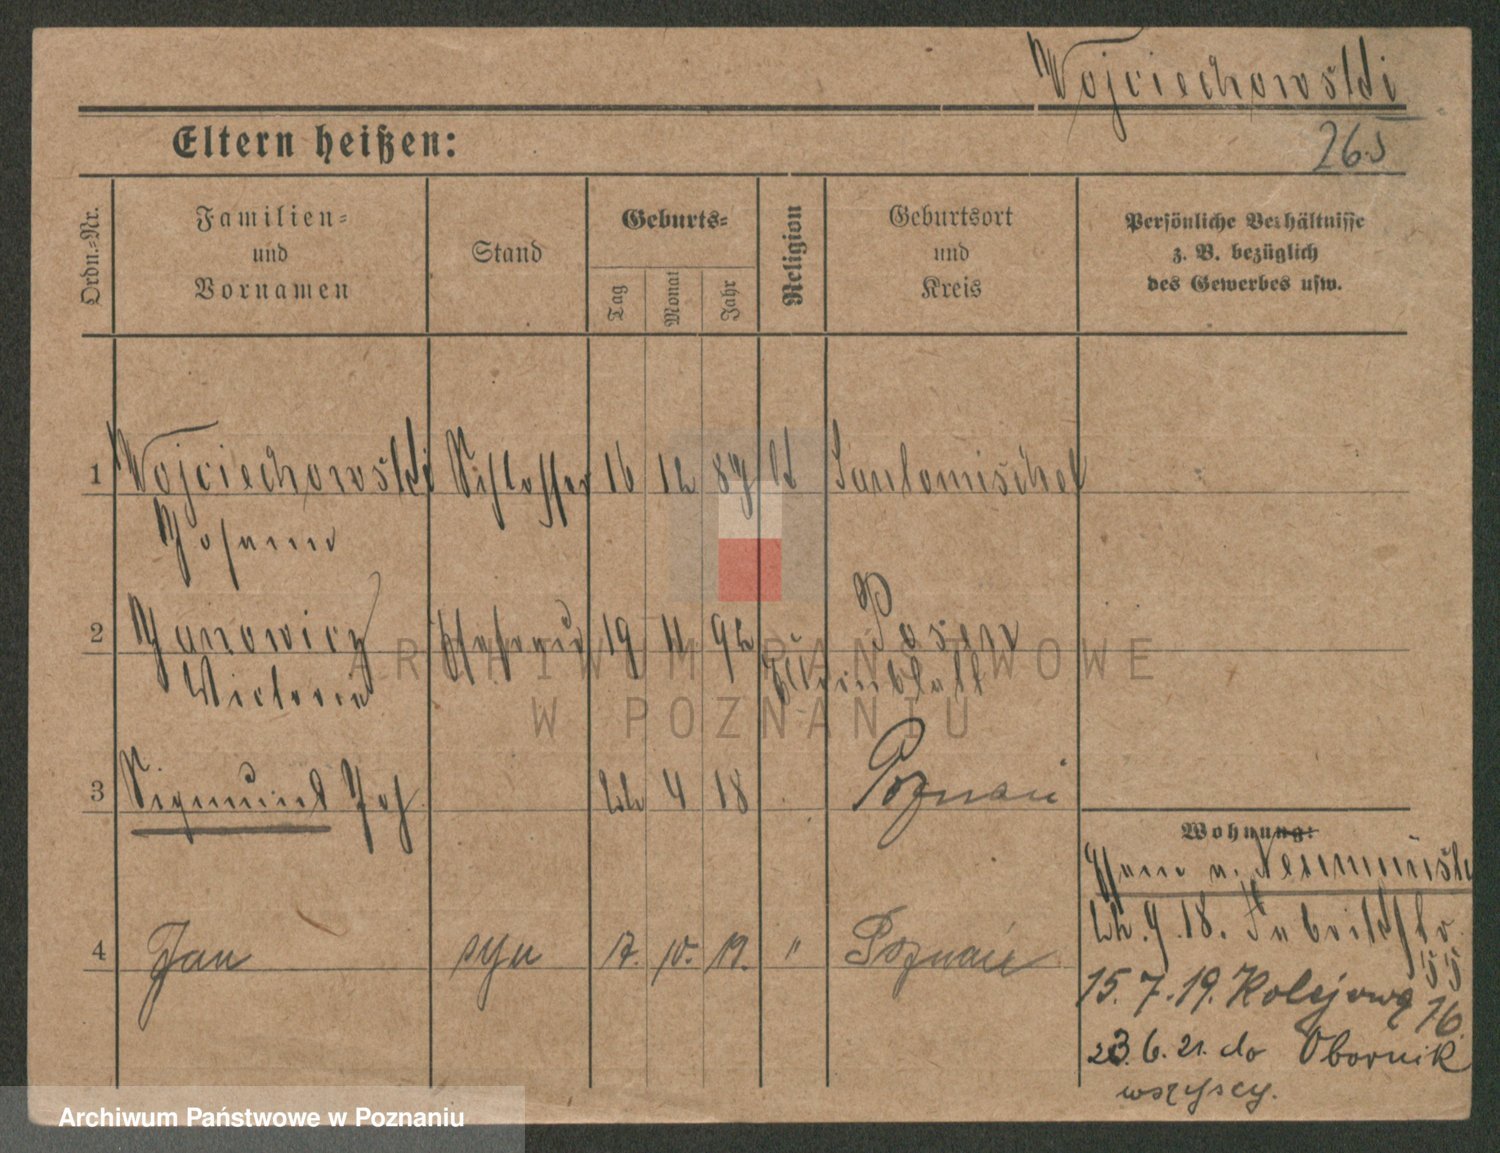 Wojciechowski
265
Eltern heißen:
Ordn.-Nr.
Familien-
und
Vornamen
Stand
Geburts-
Tag
Monat
Jahr
Religion
Geburtsort
und
Kreis
Persönliche Verhältnisse
z. B. bezüglich
des Gewerbes usw.
1 Wojciechowski Schlosser 16 12 87 Santomischel
Johann
2 Janowicz Ehefrau 19 11 92 Posen
Victoria
3 Sigmund Joh 22 4 18 Poznań
Wohnung:
4 Jan syn 17. 10. 19. " Poznań
22.9.18. Fabrikstr
55
15.7.19. Kolejowa 16.
23.6.21. do Obornik
wszyscy.
ARCHIWUM PAŃSTWOWE
W POZNANIU
Archiwum Państwowe w Poznaniu